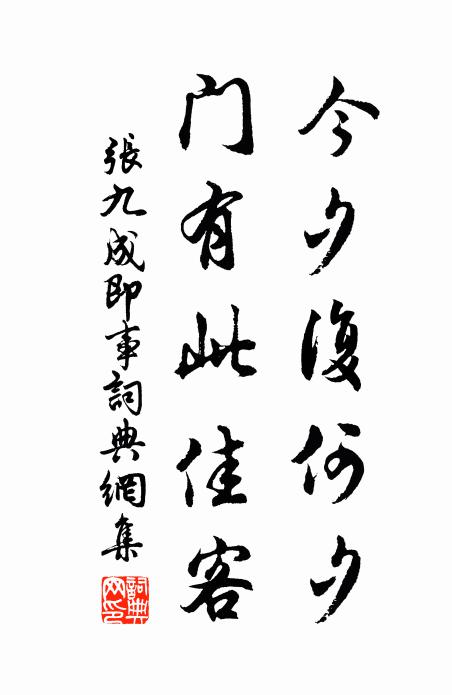 今夕復何夕
门有此佳客
張九成即事詞典網集
詞典
网印